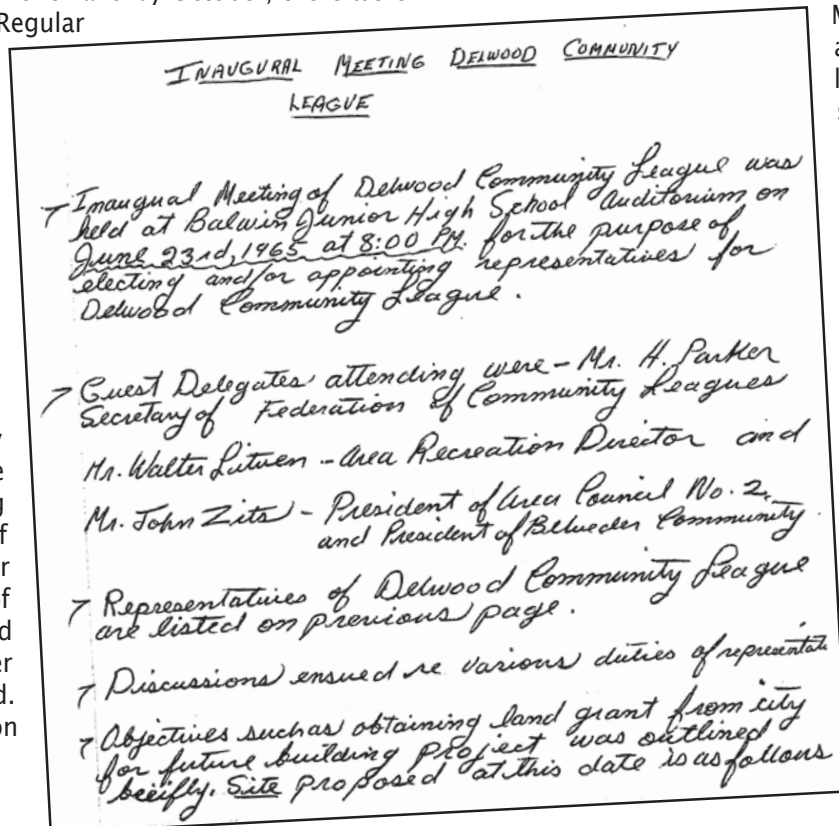 Regular
INAUGURAL MEETING DELWOOD COMMUNITY
LEAGUE
Inaugual Meeting of Delwood Community League was
held at Balwin Junior High School Auditorium on
June 23rd, 1965 at 8:00 PM. for the purpose of
electing and/or appointing representatives for
Delwood Community League.
Guest Delegates attending were - Mr. H. Parker
Secretary of Federation of Community Leagues
Mr. Walter - Area Recreation Director and
Mr. John Zits - President of Area Council No. 2.
and President of Belveder Community.
Representatives of Delwood Community League
are listed on previous page.
Discussions ensued re various duties of representati
Objectives such as obtaining land grant from city
for future building project was outlined
beeifly. Site proposed at this date is as follows